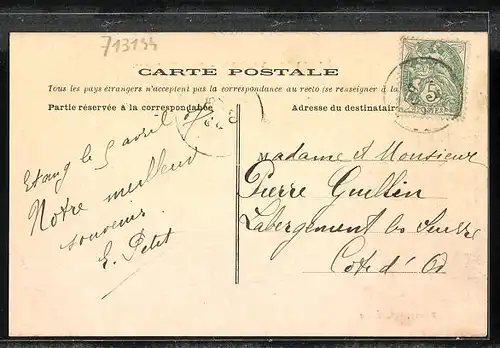 713144
CARTE POSTALE
Tous les pays étrangers n'acceptent pas la correspondance au recto (se renseigner à la
Partie réservée à la correspondance
Adresse du destinataire
Etang le 5 avril
Notre meilleur
souvenir
E. Petit
Madame et Monsieur
Pierre Guillin
Labergement les Seurre
Côte d'Or
5